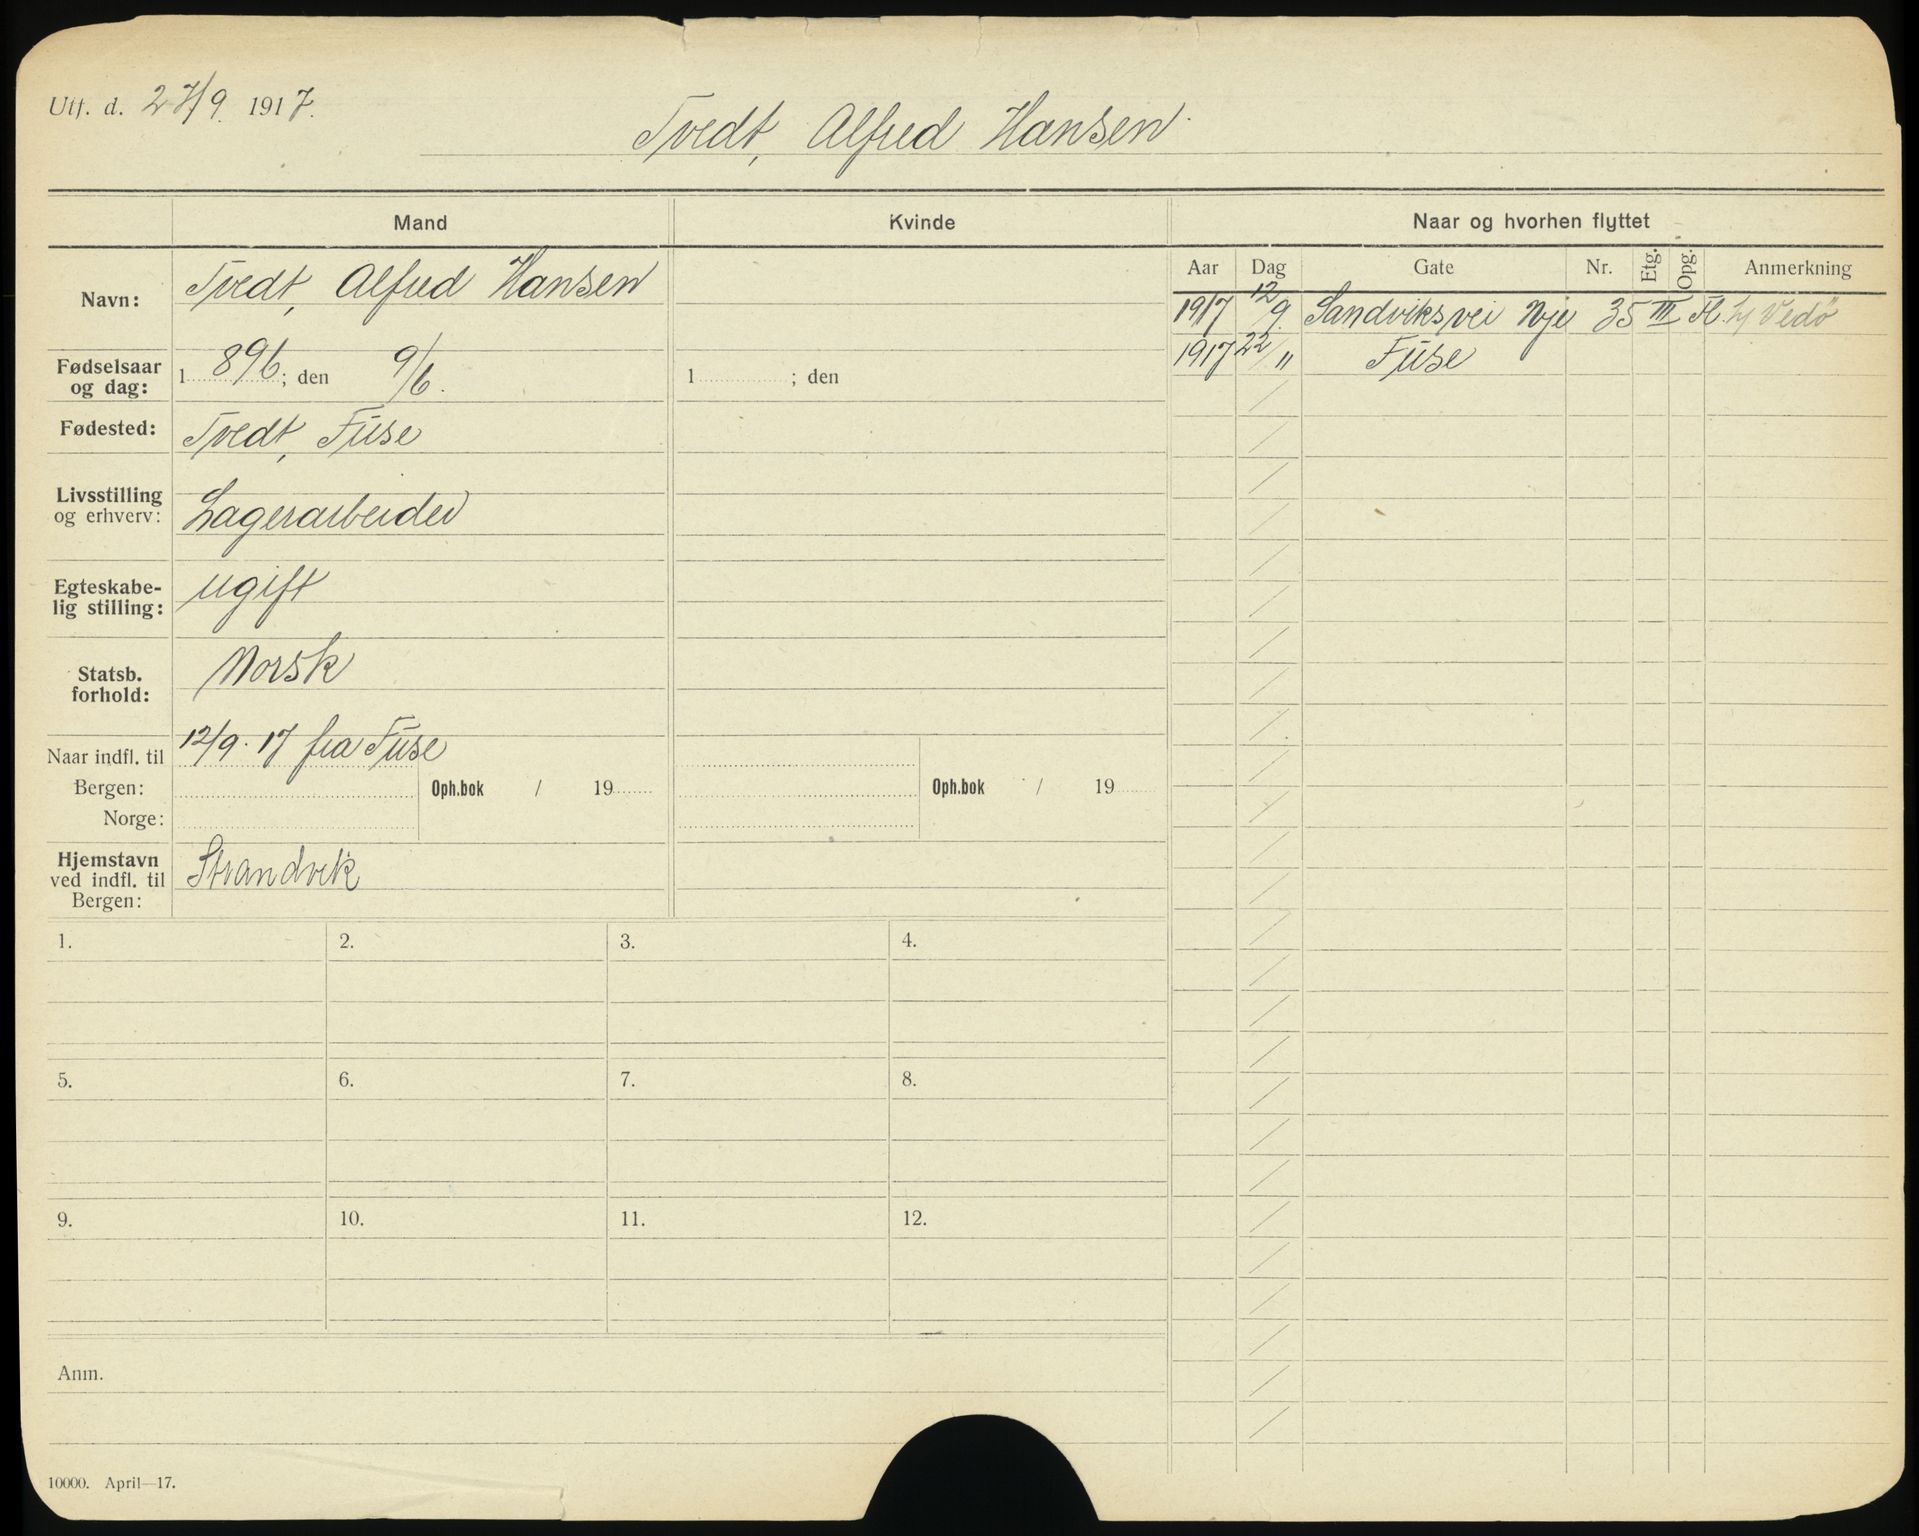 Utf. d. 27/9. 1917.
Tvedt, Alfred Hansen
Mand
Kvinde
Naar og hvorhen flyttet
Aar Dag Gate Nr. Etg. Opg. Anmerkning
Navn: Tvedt, Alfred Hansen
1917 12/9. Sandviksvei Nye 35 III Fl. h/ Vedö
1917 22/11 Fuse
Fødselsaar og dag: 1896; den 9/6.
1 ; den
Fødested: Tvedt, Fuse
Livsstilling og erhverv: Lagerarbeider
Egteskabe-
lig stilling: ugift
Statsb.
forhold: Norsk
Naar indfl. til 12/9. 17 fra Fuse
Bergen: Oph.bok / 19
Oph.bok / 19
Norge:
Hjemstavn
ved indfl. til Strandvik
Bergen:
1. 2. 3. 4.
5. 6. 7. 8.
9. 10. 11. 12.
Anm.
10000. April—17.